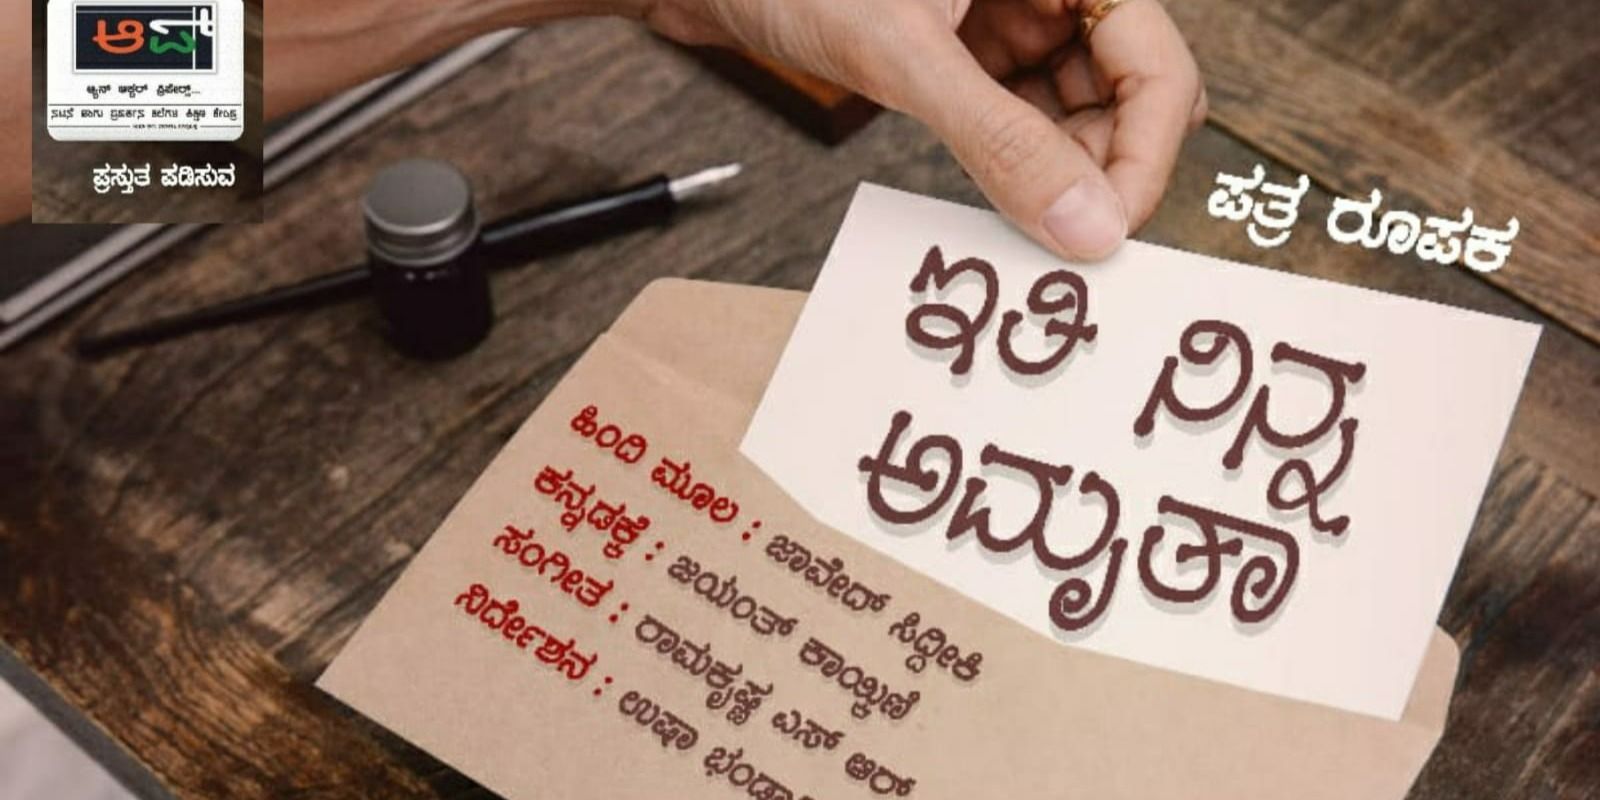 ಆಪ್
ಆ್ಯನ್ ಆಕ್ಟರ್ ಪ್ರಿಪೇರ್ಸ್...
ನಟನೆ ಹಾಗು ಪ್ರದರ್ಶನ ಕಲೆಗಳ ಶಿಕ್ಷಣ ಕೇಂದ್ರ
ಪ್ರಸ್ತುತ ಪಡಿಸುವ
ಪತ್ರ ರೂಪಕ
ಇತಿ ನಿನ್ನ
ಅಮೃತಾ
ಹಿಂದಿ ಮೂಲ : ಜಾವೇದ್ ಸಿದ್ದೀಕಿ
ಕನ್ನಡಕ್ಕೆ : ಜಯಂತ್ ಕಾಯ್ಕಿಣಿ
ಸಂಗೀತ : ರಾಮಕೃಷ್ಣ ಎಸ್ ಆರ್
ನಿರ್ದೇಶನ : ಉಷಾ